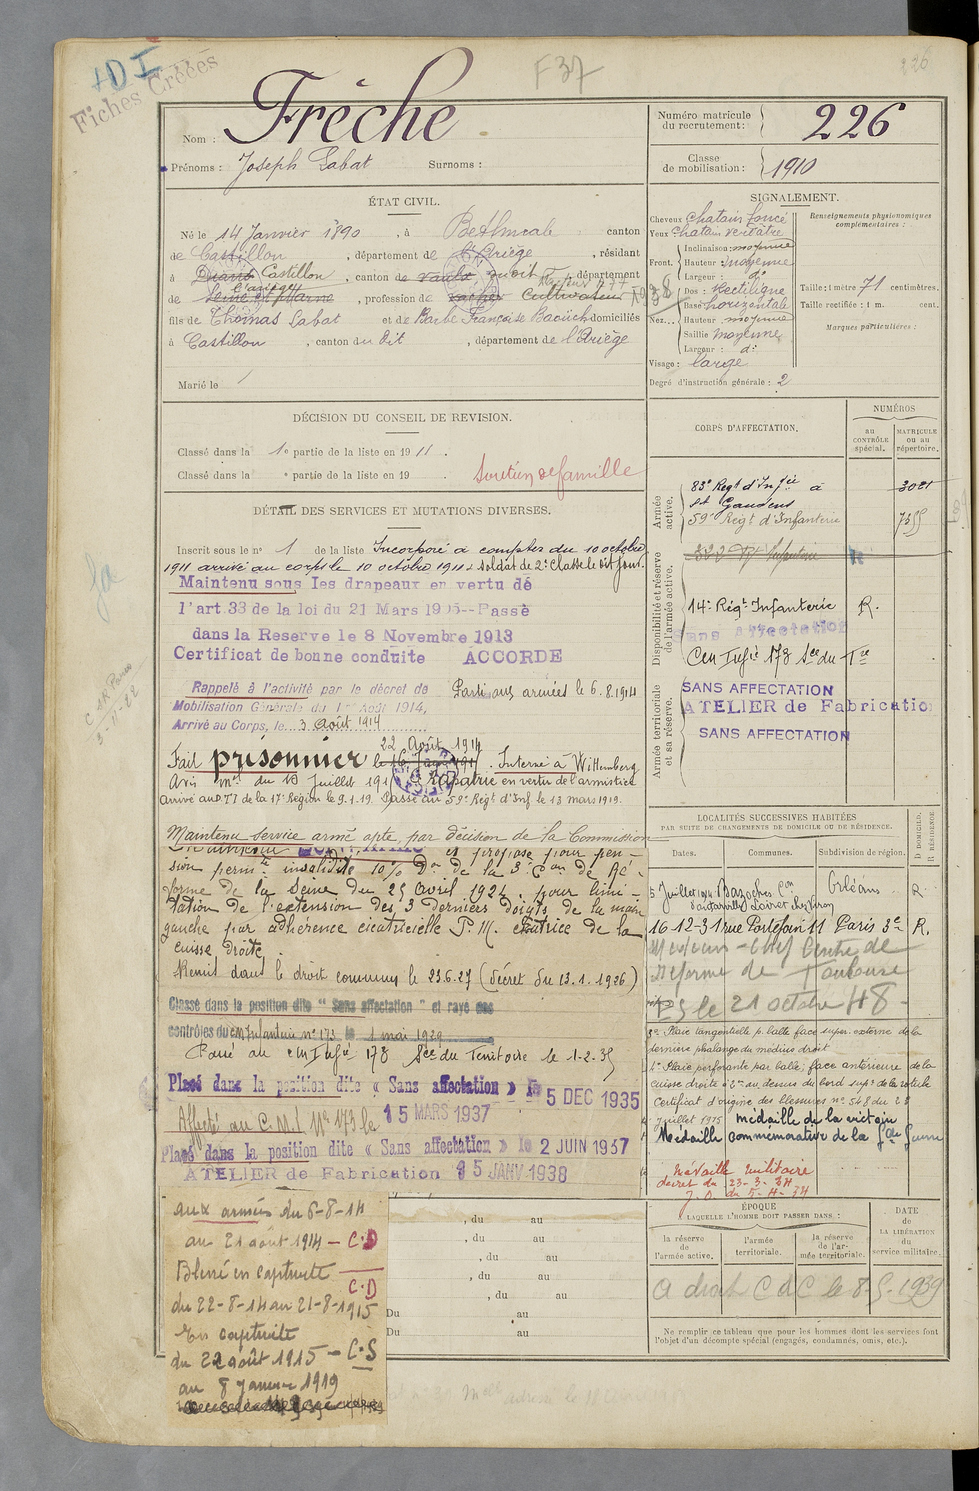 +D I
Fiches Créées
F 37
226
Nom : Frêche
Prénoms : Joseph Labat Surnoms :
Numéro matricule du recrutement : 226
Classe de mobilisation : 1910
ÉTAT CIVIL.
Né le 14 Janvier 1890 , à Bethmale canton
de Castillon , département de l'Ariège , résidant
à Castillon , canton de dit , département
de l'Ariège , profession de Cultivateur
fils de Thomas Labat et de Barbe Françoise domiciliés
à Castillon , canton du dit , département de l'Ariège
Marié le
SIGNALEMENT.
Cheveux chatain foncé
Yeux chatain verdâtre
Front. Inclinaison : moyenne
Hauteur : moyenne
Largeur : d°
Nez... Dos : Rectiligne
Base : horizontale
Hauteur moyenne
Saillie moyenne
Largeur : d°
Visage : large
Degré d'instruction générale : 2
Renseignements physionomiques complémentaires :
Taille : 1 mètre 71 centimètres.
Taille rectifiée : 1 m. cent.
Marques particulières :
DÉCISION DU CONSEIL DE REVISION.
Classé dans la 1e partie de la liste en 1911.
Classé dans la e partie de la liste en 19
Soutien de famille
DÉTAIL DES SERVICES ET MUTATIONS DIVERSES.
Inscrit sous le n° 1 de la liste Incorporé à compter du 10 octobre
1911 arrivé au corps le 10 octobre 1911 soldat de 2e classe le dit jour.
Maintenu sous les drapeaux en vertu dé
l'art.33 de la loi du 21 Mars 1905--Passé
dans la Reserve le 8 Novembre 1913
Certificat de bonne conduite ACCORDE
Rappelé à l'activité par le décret de
Mobilisation Générale du 1er Août 1914,
Arrivé au Corps, le 3 Août 1914
Parti aux armées le 6.8.1914
22 Août 1914
Fait prisonnier le . Interné à Wittemberg.
Avis du 10 Juillet 191 Rapatrié en vertu de l'armistice
arrivé au D.T.I de la 17e Région le 9.1.19. Passé au 59e Régt d'Inf le 13 mars 1919.
Maintenu service armé apte par décision de la Commission
et proposé pour pen-
sion perm.te invalidité 10% Don de la 3e Con de Ré-
forme de la Seine du 25 avril 1924 pour limi-
tation de l'extension des 3 derniers doigts de la main
gauche par adhérence cicatricielle P.M. cicatrice de la
cuisse droite.
Remis dans le droit commun le 23.6.27 (décret du 13.1.1926)
Classé dans la position dite " Sans affectation " et rayé des
contrôles du C.M. Infanterie n° 173 le 1 mai 1929
Passé au Cen Infie 178 Sce du Territoire le 1-2-35
Placé dans la position dite « Sans affectation » le 5 DEC 1935
Affecté au C.M.I N° 173 le 15 MARS 1937
Placé dans la position dite « Sans affectation » le 2 JUIN 1937
ATELIER de Fabrication 15 JANV 1938
aux armées du 6-8-14
au 21 août 1914 — C.D
Blessé en captivité — C.D
du 22-8-14 au 21-8-1915
En captivité
du 22 août 1915 — C.S
au 8 janvier 1919
, du au
, du au
, du au
, du au
, du au
Du au
Du au
CORPS D'AFFECTATION.
NUMÉROS
au CONTRÔLE spécial.
MATRICULE ou au répertoire.
Armée active.
83e Régt d'Infie à
St Gaudens
59e Régt d'Infanterie
Disponibilité et réserve de l'armée active.
322 Rt Infanterie
14e Régt Infanterie R.
Sans Affectation
Cen Infie 178 Sce du Tre
Armée territoriale et sa réserve.
SANS AFFECTATION
ATELIER de Fabricatio
SANS AFFECTATION
LOCALITÉS SUCCESSIVES HABITÉES
PAR SUITE DE CHANGEMENTS DE DOMICILE OU DE RÉSIDENCE.
D DOMICILE.
R RÉSIDENCE
Dates. Communes. Subdivision de région.
5 Juillet 1914 Bazoches Con Orléans R
d'outarville Loiret chez
16-12-31 rue Portefoin 11 Paris 3e R.
Médecin-Chef Centre de
Réforme de Toulouse
le 21 octobre 48 -
Plaie tangentielle p. balle face super. externe de la
dernière phalange du médius droit
Plaie perforante par balle, face antérieure de la
cuisse droite à au dessus du bord supr de la rotule
Certificat d'origine des blessures n° 548 du 28
juillet 1915 Médaille de la victoire
Médaille Commémorative de la Gde Guerre
Médaille militaire
décret du 23-3-34
J.O. du 5-4-34
ÉPOQUE
À LAQUELLE L'HOMME DOIT PASSER DANS :
la réserve de l'armée active.
l'armée territoriale.
la réserve de l'armée territoriale.
DATE de LA LIBÉRATION du service militaire.
A droit C d C le 8.5.1939
Ne remplir ce tableau que pour les hommes dont les services font
l'objet d'un décompte spécial (engagés, condamnés, omis, etc.).